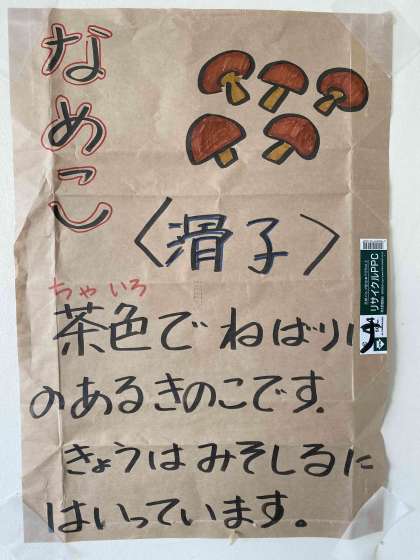 なめこ
〈滑子〉
ちゃいろ
茶色でねばりけ
のあるきのこです.
きょうはみそしるに
はいっています。
リサイクルPPC